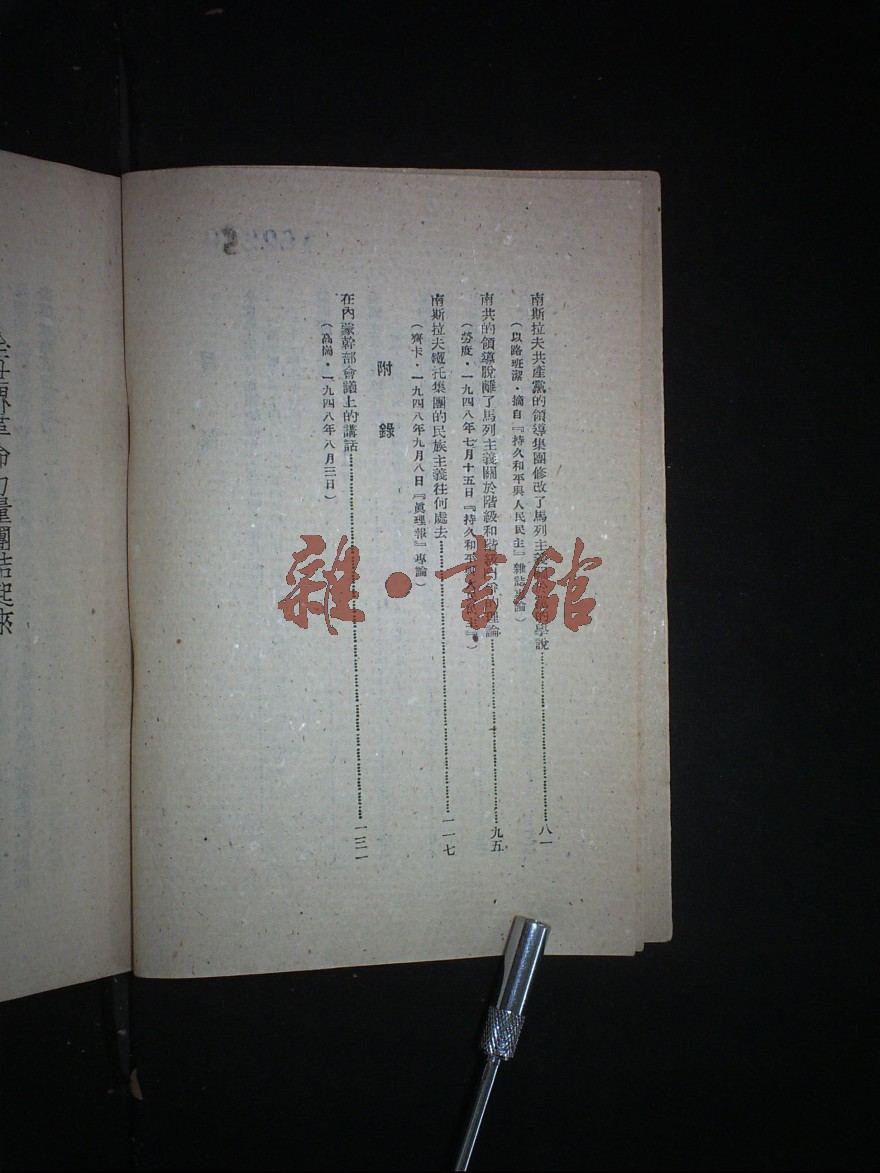 南斯拉夫共產黨的領導集團修改了馬列主義 的學說 八一
(以路班潔·摘自『持久和平與人民民主』雜誌專論)
南共的領導脫離了馬列主義關於階級和階級鬥爭的理論 九五
(勞度·一九四八年七月十五日『持久和平與人民民主』)
南斯拉夫鐵托集團的民族主義往何處去 一一七
(齊卡·一九四八年九月八日『眞理報』專論)
附錄
在內蒙幹部會議上的講話 一三一
(高崗·一九四八年八月三日)
全世界革命力量團結起來
雜·書館